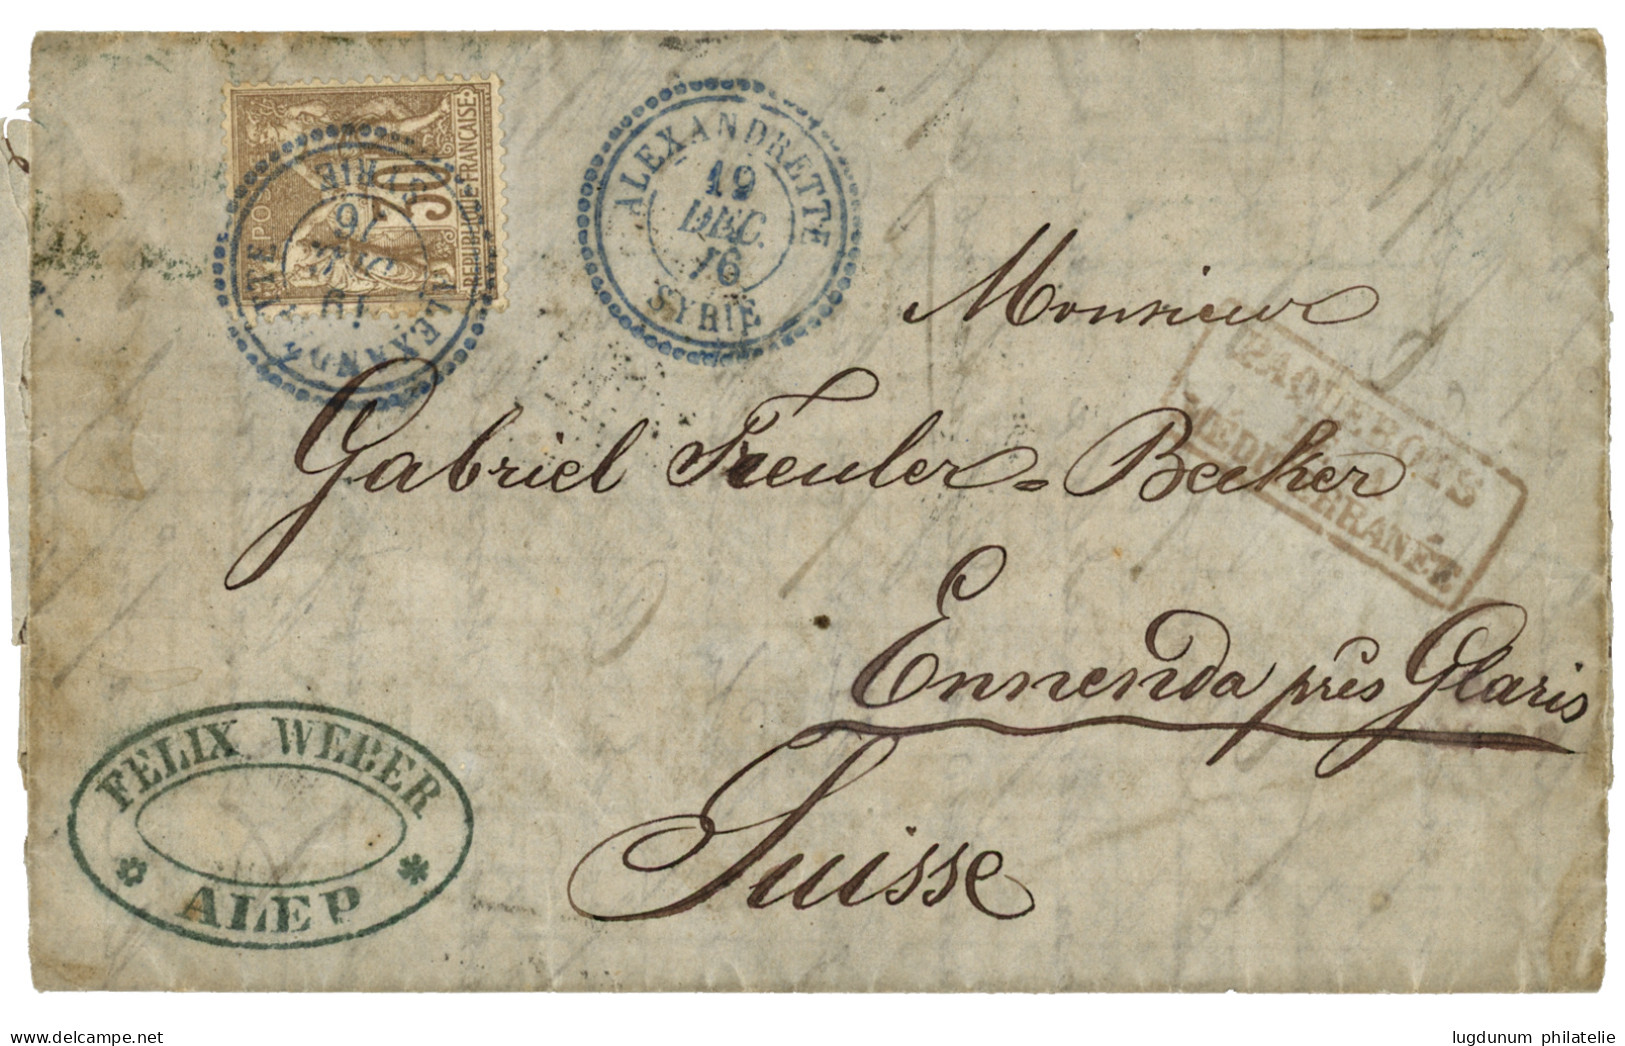 POS
30
REPUBLIQUE FRANÇAISE
ALEXANDRETTE
19
DEC.
76
SYRIE
ALEXANDRETTE
19
DEC.
76
SYRIE
Monsieur
Gabriel Freuler=Becker
Ennenda près Glaris
Suisse
PAQUEBOTS
MÉDITERRANÉE
FELIX WEBER
ALEP
delcampe.net
lugdunum philatelie